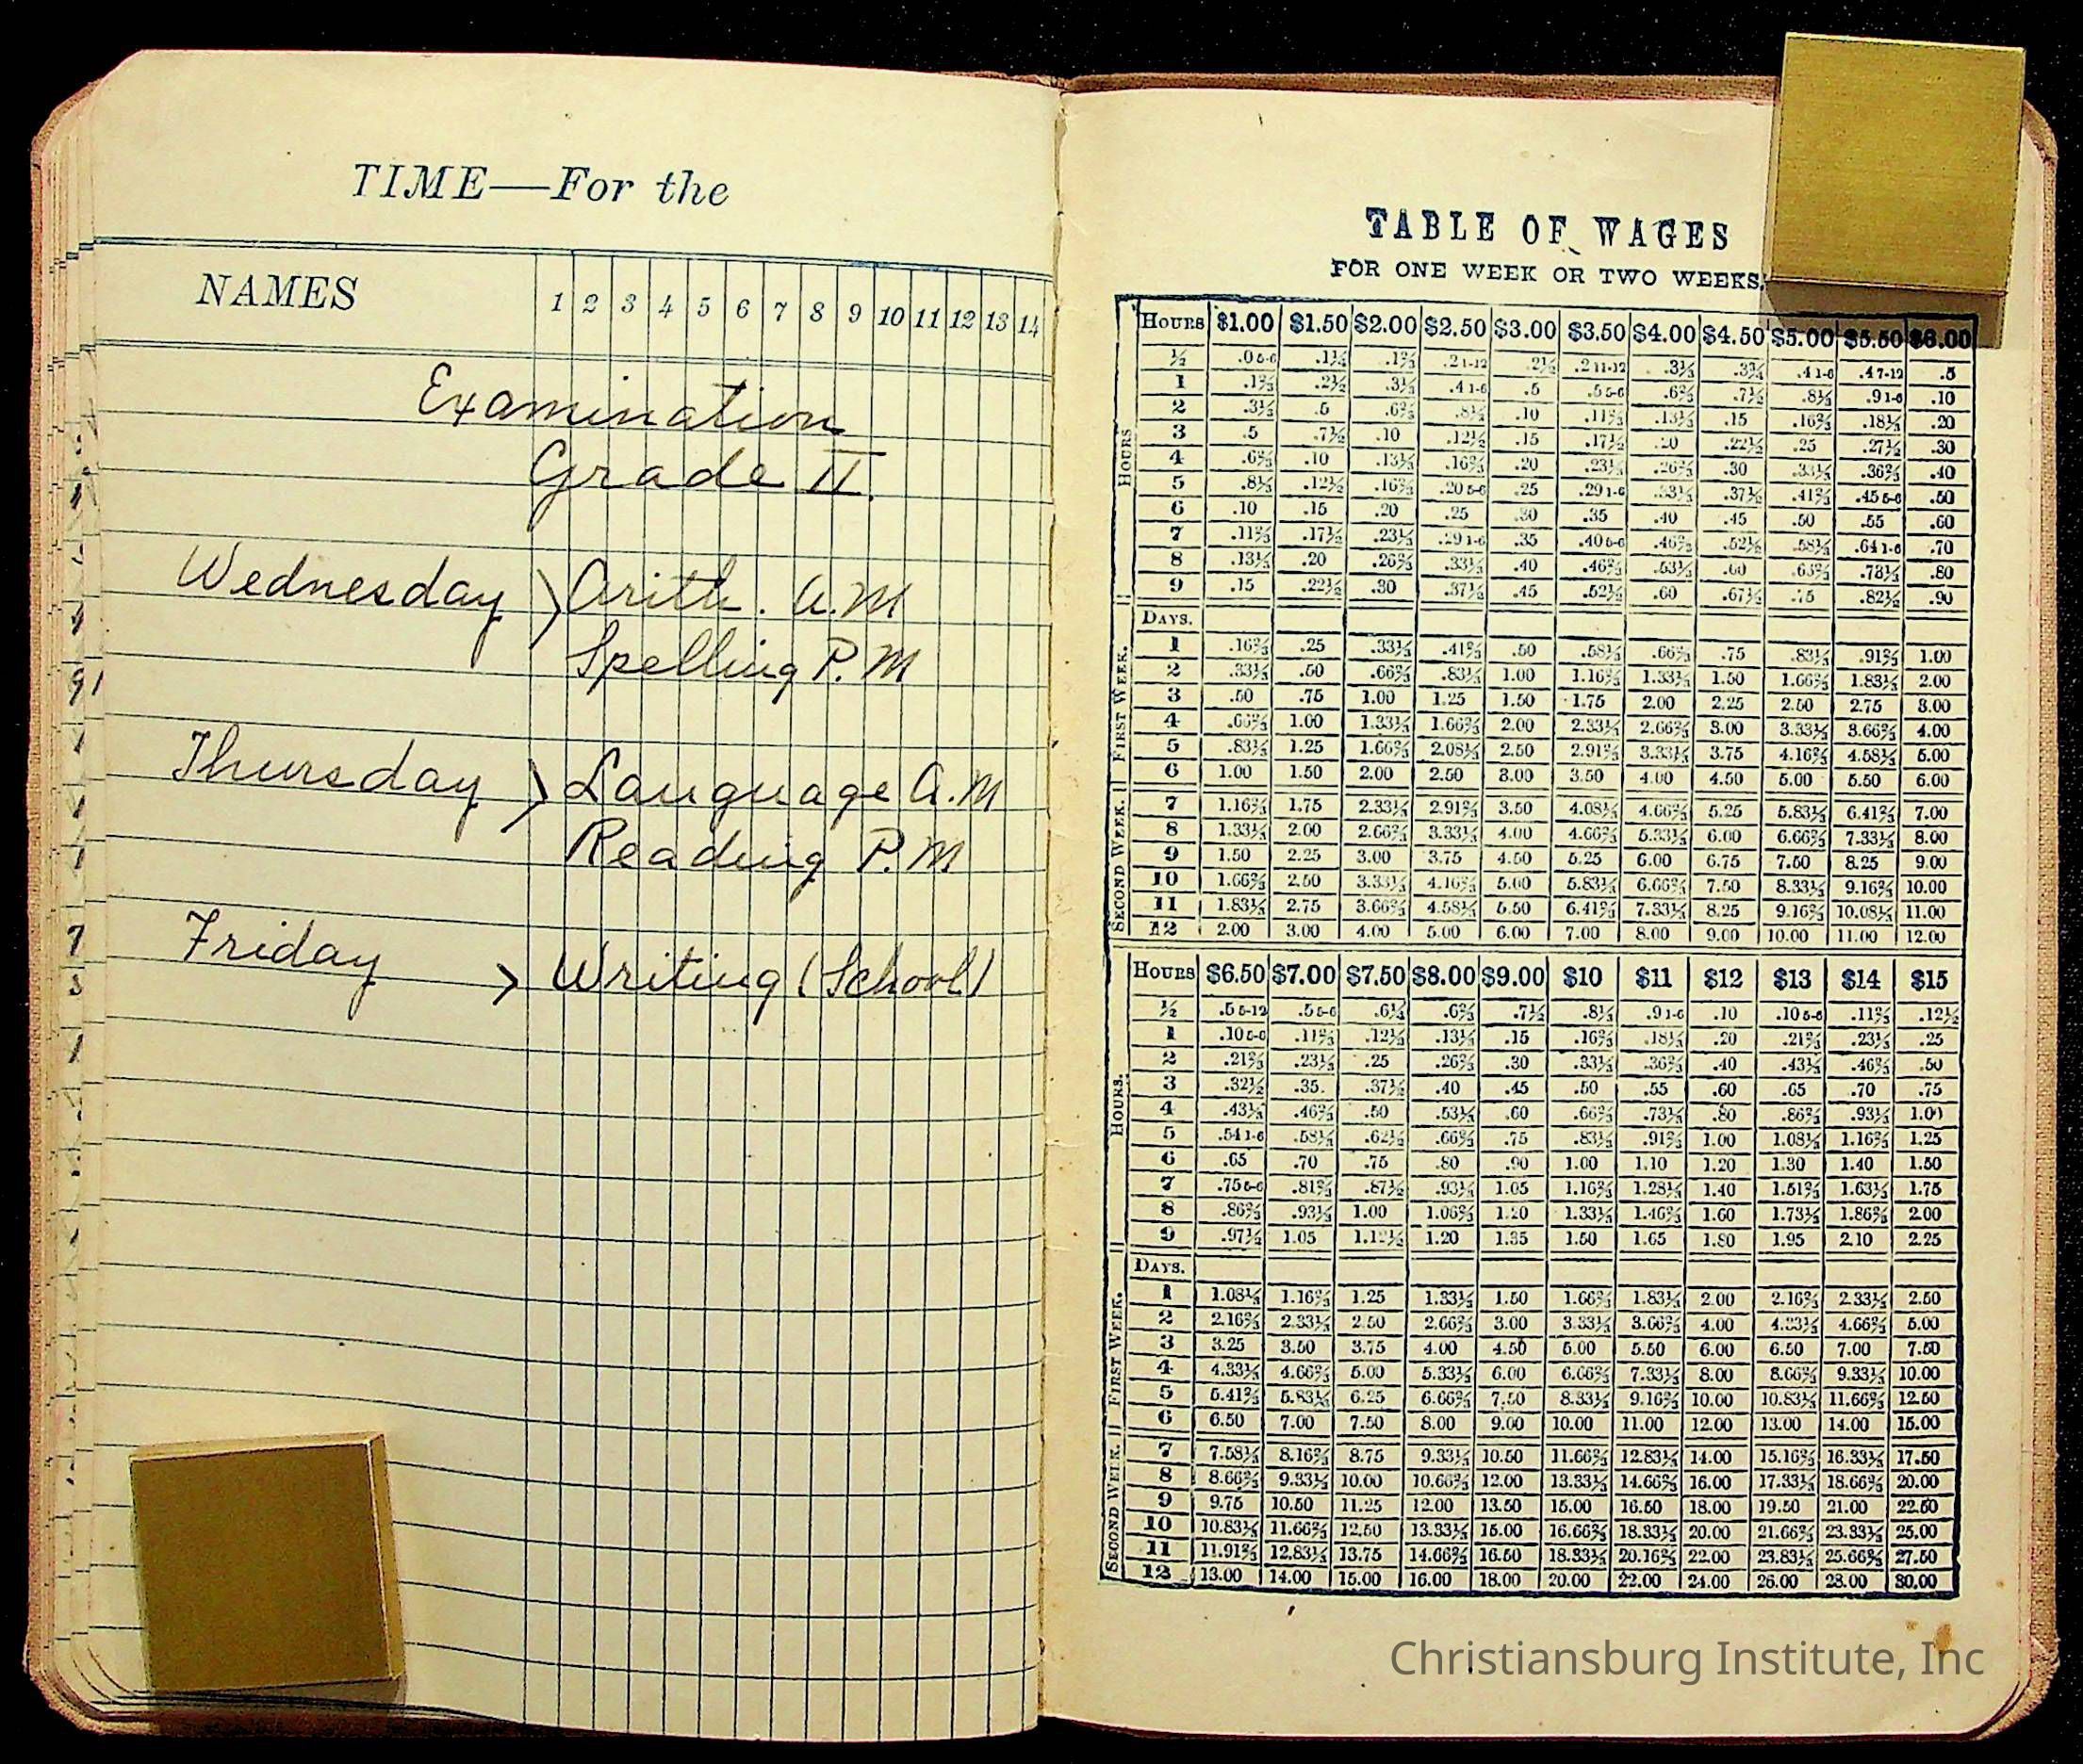 TIME—For the
NAMES 1 2 3 4 5 6 7 8 9 10 11 12 13 14
Examination
Grade II.
Wednesday > Arith. A.M
Spelling P.M
Thursday > Language A.M
Reading P.M
Friday > Writing (School)
91
7
3
TABLE OF WAGES
FOR ONE WEEK OR TWO WEEKS.
HOURS $1.00 $1.50 $2.00 $2.50 $3.00 $3.50 $4.00 $4.50 $5.00 $5.50 $6.00
HOURS
½ .0 5-6 .1¼ .1⅔ .2 1-12 .2½ .2 11-12 .3⅓ .3¾ .4 1-6 .4 7-12 .5
1 .1⅔ .2½ .3⅓ .4 1-6 .5 .5 5-6 .6⅔ .7½ .8⅓ .9 1-6 .10
2 .3⅓ .5 .6⅔ .8⅓ .10 .11⅔ .13⅓ .15 .16⅔ .18⅓ .20
3 .5 .7½ .10 .12½ .15 .17½ .20 .22½ .25 .27½ .30
4 .6⅔ .10 .13⅓ .16⅔ .20 .23⅓ .26⅔ .30 .33⅓ .36⅔ .40
5 .8⅓ .12½ .16⅔ .20 5-6 .25 .29 1-6 .33⅓ .37½ .41⅔ .45 5-6 .50
6 .10 .15 .20 .25 .30 .35 .40 .45 .50 .55 .60
7 .11⅔ .17½ .23⅓ .29 1-6 .35 .40 5-6 .46⅔ .52½ .58⅓ .64 1-6 .70
8 .13⅓ .20 .26⅔ .33⅓ .40 .46⅔ .53⅓ .60 .66⅔ .73⅓ .80
9 .15 .22½ .30 .37½ .45 .52½ .60 .67½ .75 .82½ .90
DAYS.
FIRST WEEK.
1 .16⅔ .25 .33⅓ .41⅔ .50 .58⅓ .66⅔ .75 .83⅓ .91⅔ 1.00
2 .33⅓ .50 .66⅔ .83⅓ 1.00 1.16⅔ 1.33⅓ 1.50 1.66⅔ 1.83⅓ 2.00
3 .50 .75 1.00 1.25 1.50 1.75 2.00 2.25 2.50 2.75 3.00
4 .66⅔ 1.00 1.33⅓ 1.66⅔ 2.00 2.33⅓ 2.66⅔ 3.00 3.33⅓ 3.66⅔ 4.00
5 .83⅓ 1.25 1.66⅔ 2.08⅓ 2.50 2.91⅔ 3.33⅓ 3.75 4.16⅔ 4.58⅓ 5.00
6 1.00 1.50 2.00 2.50 3.00 3.50 4.00 4.50 5.00 5.50 6.00
SECOND WEEK.
7 1.16⅔ 1.75 2.33⅓ 2.91⅔ 3.50 4.08⅓ 4.66⅔ 5.25 5.83⅓ 6.41⅔ 7.00
8 1.33⅓ 2.00 2.66⅔ 3.33⅓ 4.00 4.66⅔ 5.33⅓ 6.00 6.66⅔ 7.33⅓ 8.00
9 1.50 2.25 3.00 3.75 4.50 5.25 6.00 6.75 7.50 8.25 9.00
10 1.66⅔ 2.50 3.33⅓ 4.16⅔ 5.00 5.83⅓ 6.66⅔ 7.50 8.33⅓ 9.16⅔ 10.00
11 1.83⅓ 2.75 3.66⅔ 4.58⅓ 5.50 6.41⅔ 7.33⅓ 8.25 9.16⅔ 10.08⅓ 11.00
12 2.00 3.00 4.00 5.00 6.00 7.00 8.00 9.00 10.00 11.00 12.00
HOURS $6.50 $7.00 $7.50 $8.00 $9.00 $10 $11 $12 $13 $14 $15
HOURS.
½ .5 5-12 .5 5-6 .6¼ .6⅔ .7½ .8⅓ .9 1-6 .10 .10 5-6 .11⅔ .12½
1 .10 5-6 .11⅔ .12½ .13⅓ .15 .16⅔ .18⅓ .20 .21⅔ .23⅓ .25
2 .21⅔ .23⅓ .25 .26⅔ .30 .33⅓ .36⅔ .40 .43⅓ .46⅔ .50
3 .32½ .35 .37½ .40 .45 .50 .55 .60 .65 .70 .75
4 .43⅓ .46⅔ .50 .53⅓ .60 .66⅔ .73⅓ .80 .86⅔ .93⅓ 1.00
5 .54 1-6 .58⅓ .62½ .66⅔ .75 .83⅓ .91⅔ 1.00 1.08⅓ 1.16⅔ 1.25
6 .65 .70 .75 .80 .90 1.00 1.10 1.20 1.30 1.40 1.50
7 .75 5-6 .81⅔ .87½ .93⅓ 1.05 1.16⅔ 1.28⅓ 1.40 1.51⅔ 1.63⅓ 1.75
8 .86⅔ .93⅓ 1.00 1.06⅔ 1.20 1.33⅓ 1.46⅔ 1.60 1.73⅓ 1.86⅔ 2.00
9 .97½ 1.05 1.12½ 1.20 1.35 1.50 1.65 1.80 1.95 2.10 2.25
DAYS.
FIRST WEEK.
1 1.08⅓ 1.16⅔ 1.25 1.33⅓ 1.50 1.66⅔ 1.83⅓ 2.00 2.16⅔ 2.33⅓ 2.50
2 2.16⅔ 2.33⅓ 2.50 2.66⅔ 3.00 3.33⅓ 3.66⅔ 4.00 4.33⅓ 4.66⅔ 5.00
3 3.25 3.50 3.75 4.00 4.50 5.00 5.50 6.00 6.50 7.00 7.50
4 4.33⅓ 4.66⅔ 5.00 5.33⅓ 6.00 6.66⅔ 7.33⅓ 8.00 8.66⅔ 9.33⅓ 10.00
5 5.41⅔ 5.83⅓ 6.25 6.66⅔ 7.50 8.33⅓ 9.16⅔ 10.00 10.83⅓ 11.66⅔ 12.50
6 6.50 7.00 7.50 8.00 9.00 10.00 11.00 12.00 13.00 14.00 15.00
SECOND WEEK.
7 7.58⅓ 8.16⅔ 8.75 9.33⅓ 10.50 11.66⅔ 12.83⅓ 14.00 15.16⅔ 16.33⅓ 17.50
8 8.66⅔ 9.33⅓ 10.00 10.66⅔ 12.00 13.33⅓ 14.66⅔ 16.00 17.33⅓ 18.66⅔ 20.00
9 9.75 10.50 11.25 12.00 13.50 15.00 16.50 18.00 19.50 21.00 22.50
10 10.83⅓ 11.66⅔ 12.50 13.33⅓ 15.00 16.66⅔ 18.33⅓ 20.00 21.66⅔ 23.33⅓ 25.00
11 11.91⅔ 12.83⅓ 13.75 14.66⅔ 16.50 18.33⅓ 20.16⅔ 22.00 23.83⅓ 25.66⅔ 27.50
12 13.00 14.00 15.00 16.00 18.00 20.00 22.00 24.00 26.00 28.00 30.00
Christiansburg Institute, Inc